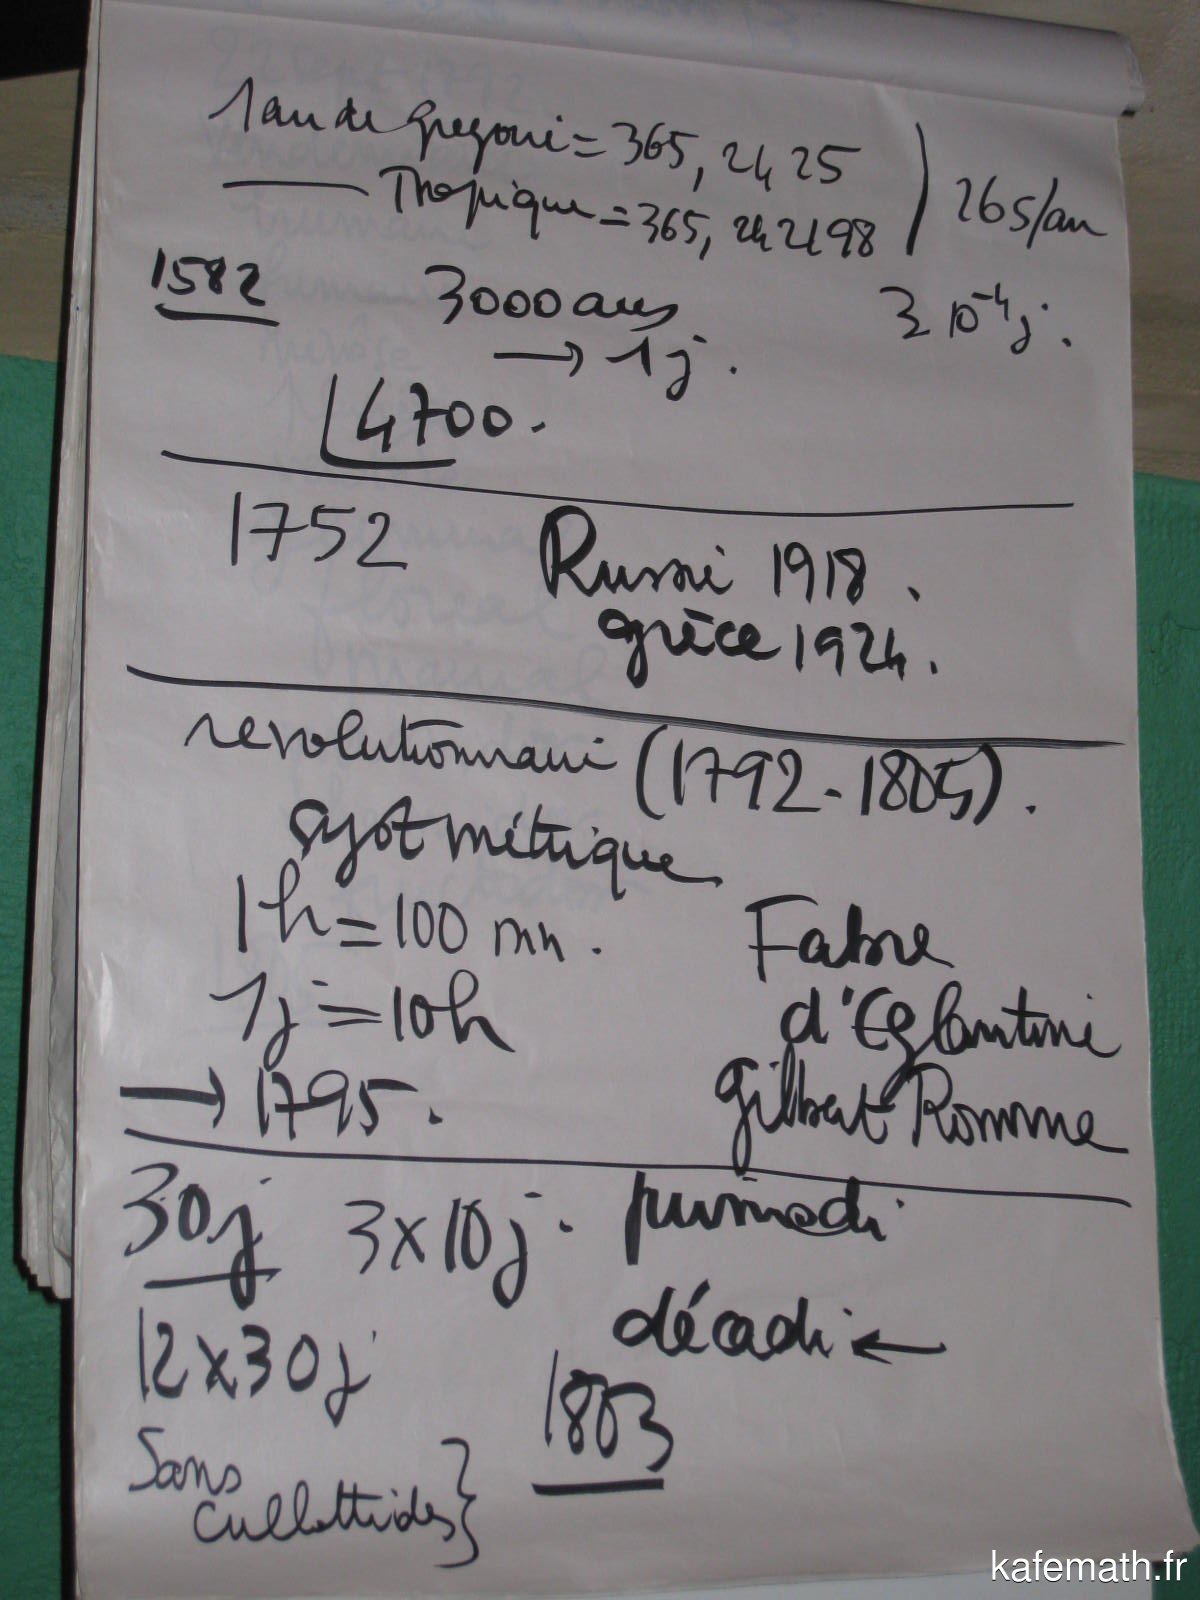 1 an de Gregoire = 365, 2425
Tropique = 365, 242198
26s/an
1582
3000 ans
3 10⁻⁴ j.
→ 1j.
4700.
1752
Russie 1918.
grèce 1924.
revolutionnaire (1792-1805).
syst métrique
1h = 100 mn.
Fabre
1j = 10h
d'Eglantine
→ 1795.
Gilbert Romme
30j 3x10j. primedi
décadi ←
12x30j
1803
Sans
Cullottides }
kafemath.fr